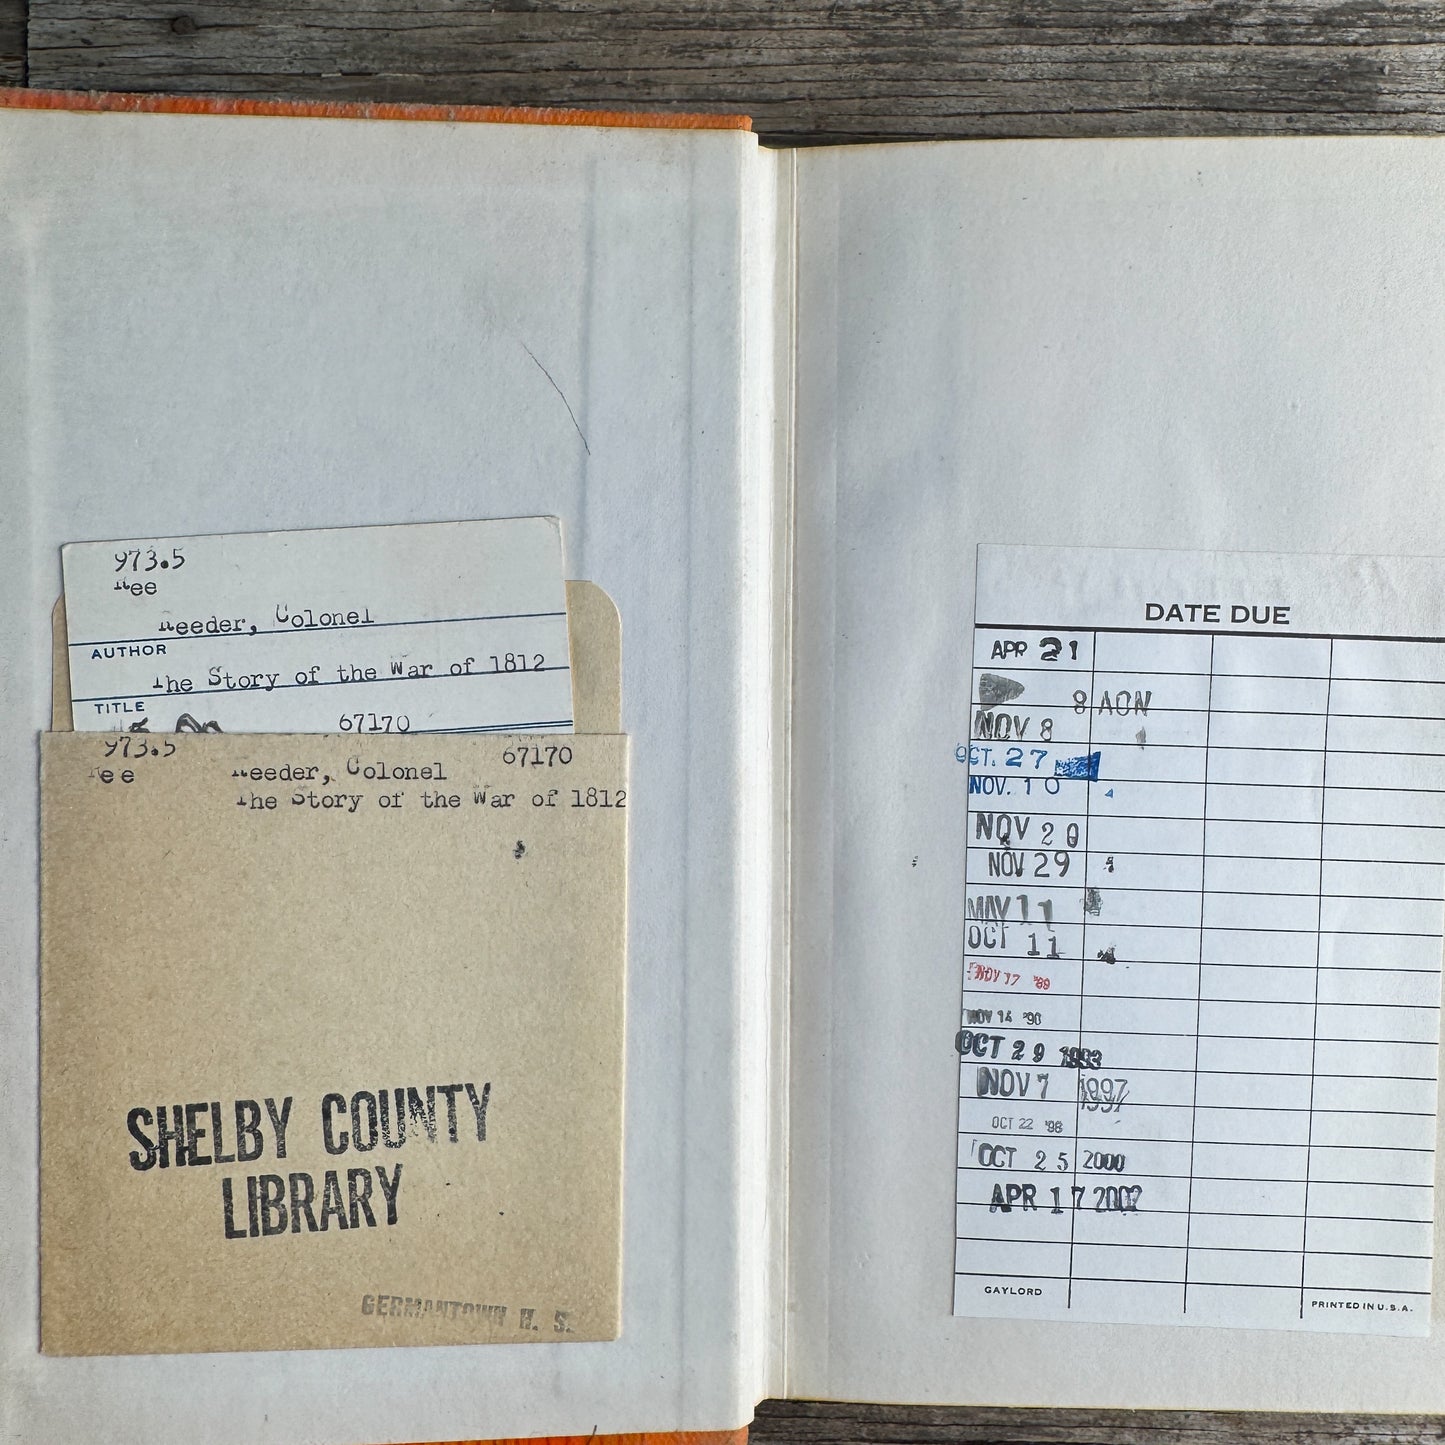 973.5
Ree
Reeder, Colonel
AUTHOR
The Story of the War of 1812
TITLE
67170
973.5 67170
Ree Reeder, Colonel
The Story of the War of 1812
SHELBY COUNTY
LIBRARY
GERMANTOWN H. S.
DATE DUE
APR 21
8 AON
NOV 8
OCT. 27
NOV. 10
NOV 20
NOV 29
MAY 11
OCT 11
NOV 17 '89
NOV 14 '90
OCT 29 1993
NOV 7 1997
OCT 22 '98
OCT 25 2000
APR 17 2002
GAYLORD
PRINTED IN U.S.A.